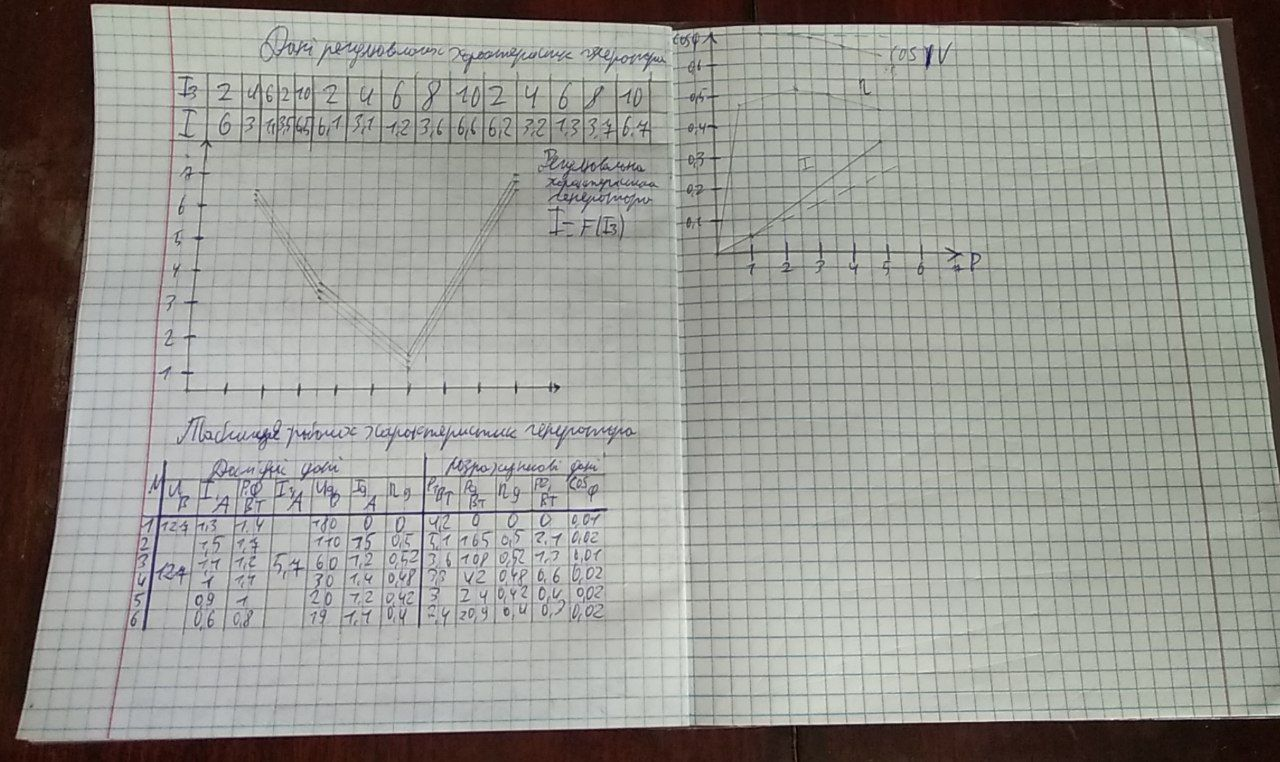 Дані регулювальних характеристик генератора
Iз 2 4 6 2 10 2 4 6 8 10 2 4 6 8 10
I 6 3 1,1 3,5 6,5 6,1 3,1 1,2 3,6 6,6 6,2 3,2 1,3 3,7 6,7
7
6
5
4
3
2
1
Регулювальна
характеристика
генератора
I = F(Iз)
Таблиця робочих характеристик генератора
Дослідні дані Розрахункові дані
№ U, В I, А Pф Вт Iз, А Uд В Iд А nд P1 Вт Pд Вт nд P2, Вт cos φ
1 127 1,3 1,4 180 0 0 4,2 0 0 0 0,01
2 1,5 1,7 110 15 0,5 5,1 165 0,5 2,1 0,02
3 1,1 1,2 60 1,2 0,52 3,6 108 0,52 1,3 0,01
127 5,7
4 1 1,1 30 1,4 0,48 3,3 42 0,48 0,6 0,02
5 0,9 1 20 1,2 0,42 3 24 0,42 0,4 0,02
6 0,6 0,8 19 1,1 0,4 2,4 20,9 0,4 0,02
cosφ
0,6
0,5
0,4
0,3
0,2
0,1
1 2 3 4 5 6 7 P
cos φ
n
I